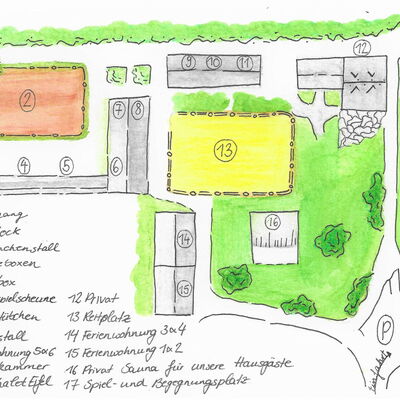 12
9 10 11
2
7 8
13
4 5 6
14
16
15
P
Einfahrt
ang
ock
nchenstall
eboxen
box
pielscheune 12 Privat
tübchen 13 Reitplatz
stall 14 Ferienwohnung 3x4
ohnung 5x6 15 Ferienwohnung 1x2
kammer 16 Privat Sauna für unsere Hausgäste
halet Eifel 17 Spiel- und Begegnungsplatz